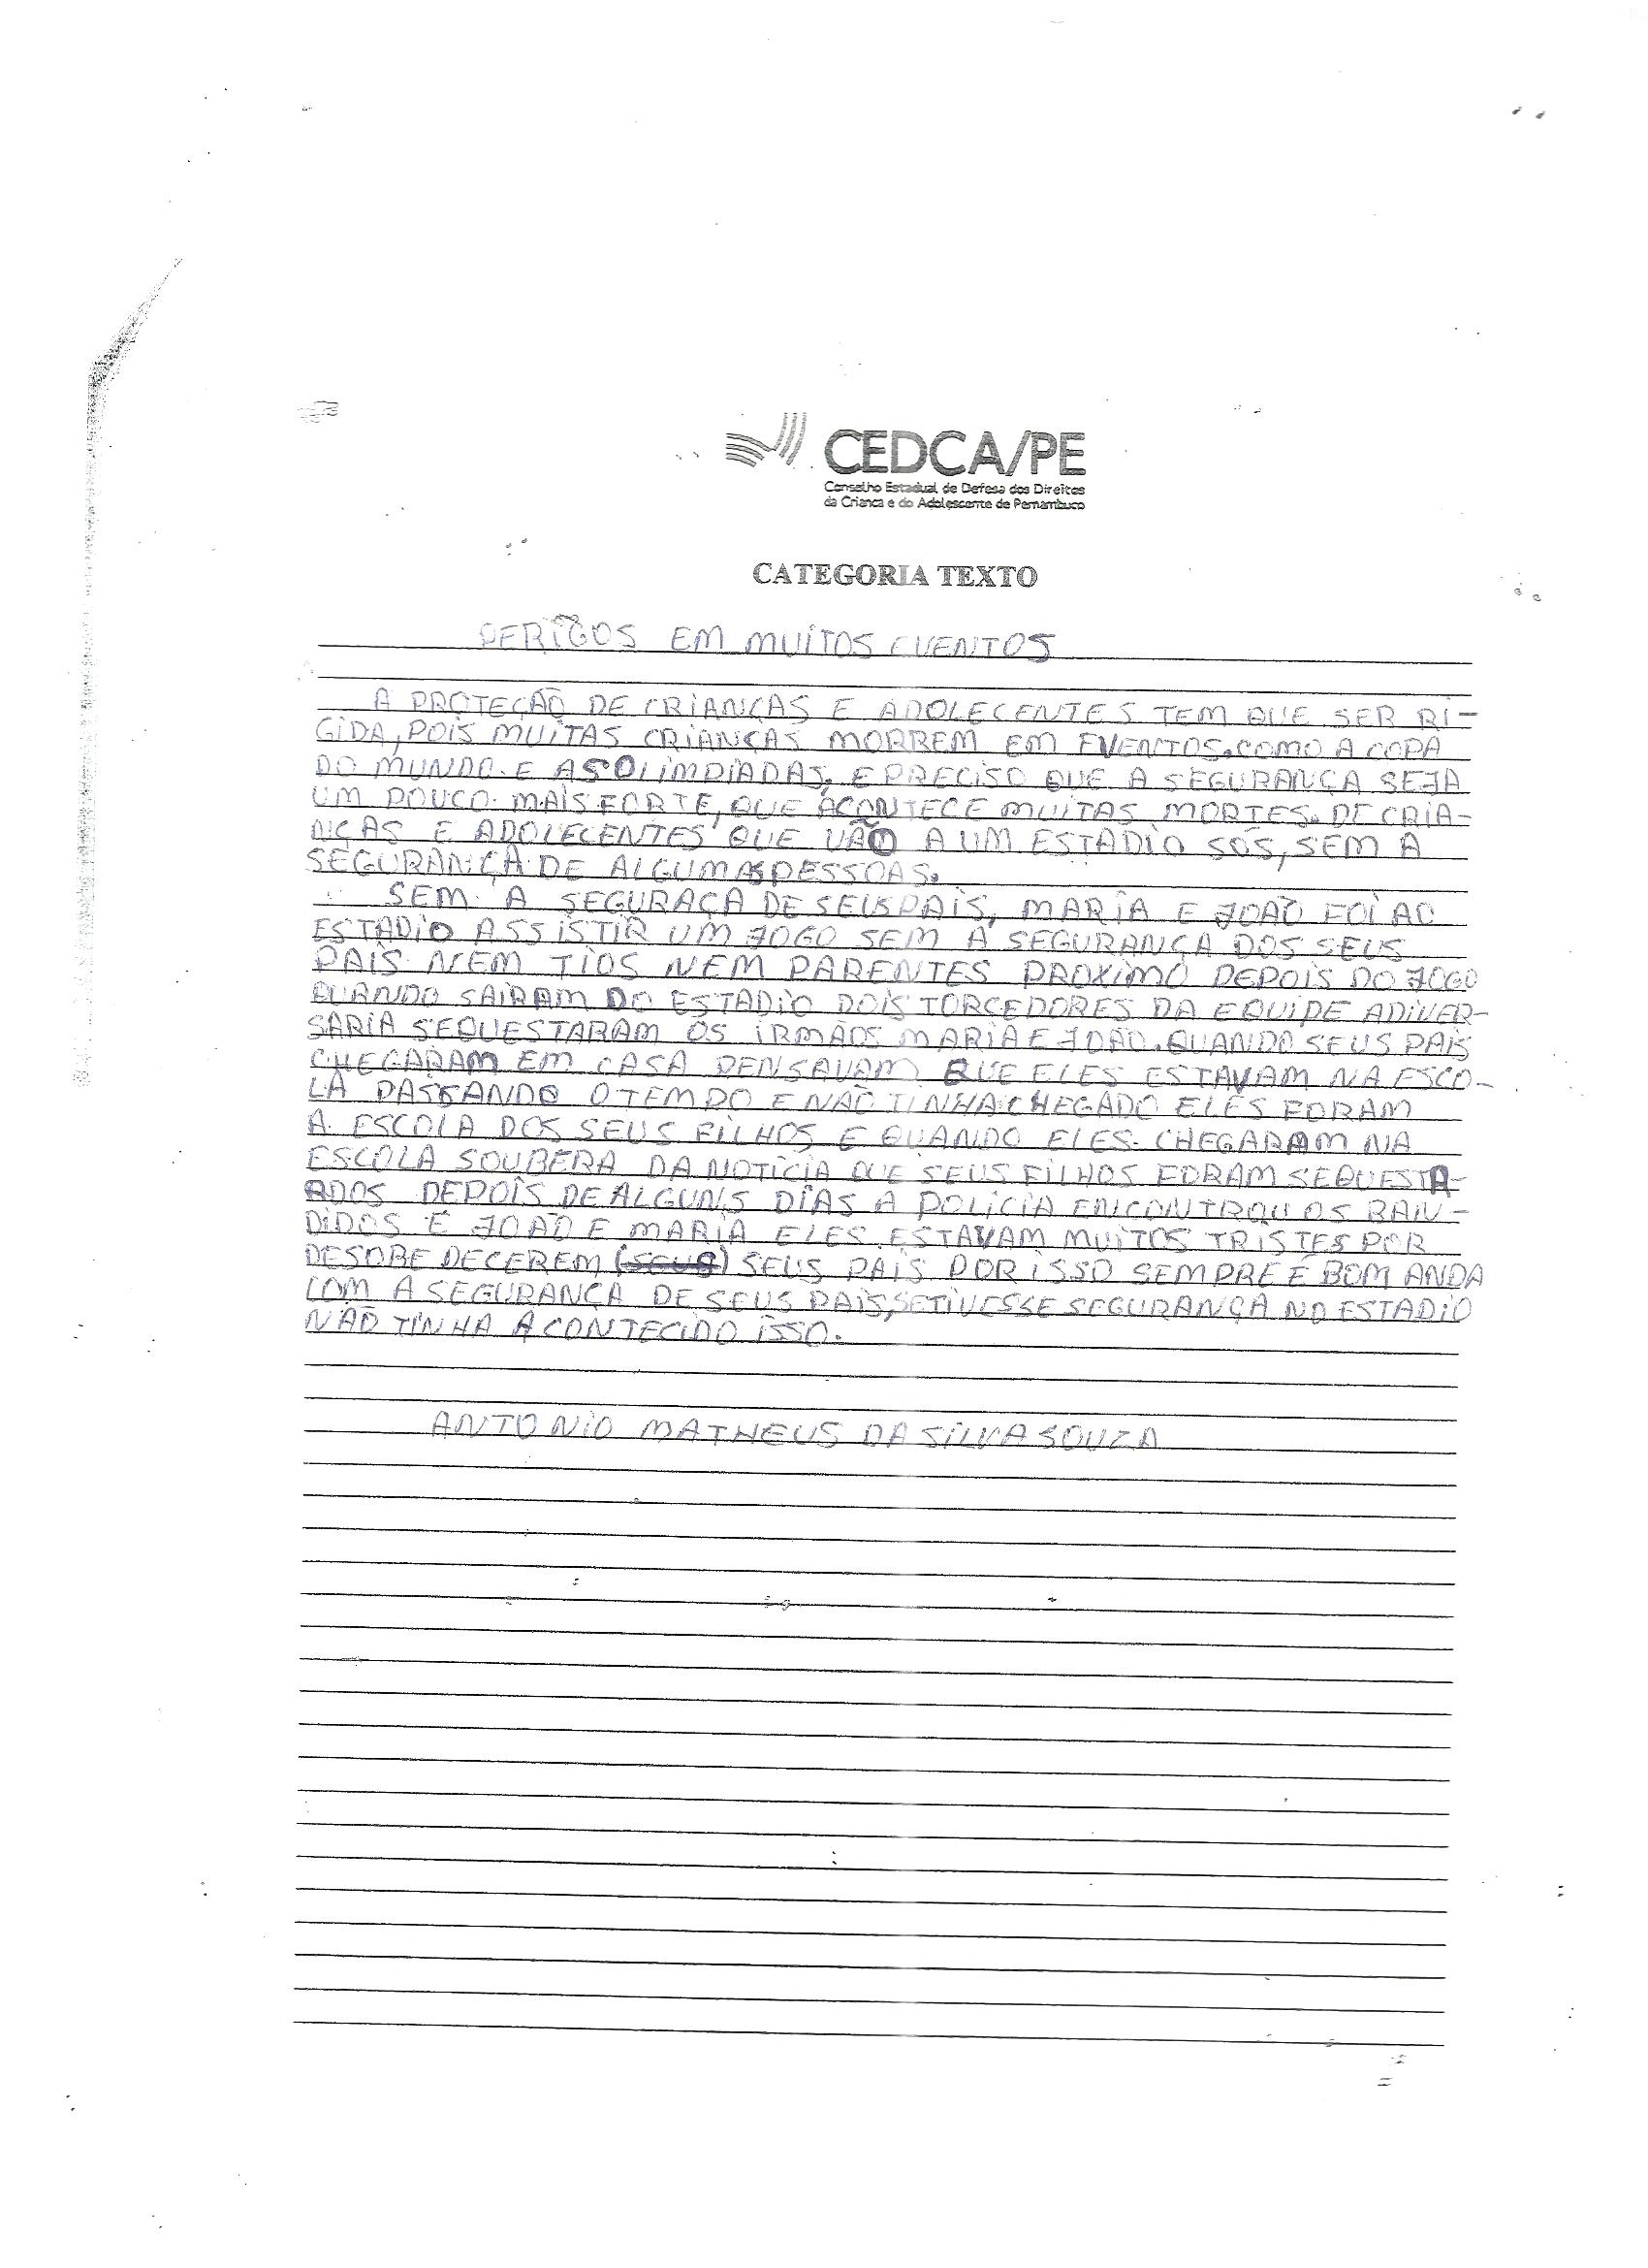 CEDCA/PE
Conselho Estadual de Defesa dos Direitos
da Criança e do Adolescente de Pernambuco
CATEGORIA TEXTO
PERIGOS EM MUITOS EVENTOS
A PROTEÇÃO DE CRIANÇAS E ADOLECENTES TEM QUE SER RI-
GIDA, POIS MUITAS CRIANÇAS MORREM EM EVENTOS. COMO A COPA
DO MUNDO E AS OLIMPIADAS, E PRECISO QUE A SEGURANÇA SEJA
UM POUCO MAIS FORTE, QUE ACONTECE MUITAS MORTES. DE CRIA-
NÇAS E ADOLECENTES QUE VÃO A UM ESTADIO SOS, SEM A
SEGURANÇA DE ALGUMAS PESSOAS.
SEM A SEGURAÇA DE SEUS PAIS, MARIA E JOÃO FOI AO
ESTADIO ASSISTIR UM JOGO SEM A SEGURANÇA DOS SEUS
PAIS NEM TIOS NEM PARENTES PROXIMO DEPOIS DO JOGO
QUANDO SAIRAM DO ESTADIO DOIS TORCEDORES DA EQUIPE ADIVER-
SARIA SEQUESTARAM OS IRMÃOS MARIA E JOÃO. QUANDO SEUS PAIS
CHEGARAM EM CASA PENSAVAM QUE ELES ESTAVAM NA ESCO-
LA PASSANDO O TEMPO E NÃO TINHA CHEGADO ELES FORAM
A ESCOLA DOS SEUS FILHOS E QUANDO ELES CHEGARAM NA
ESCOLA SOUBERA DA NOTICIA QUE SEUS FILHOS FORAM SEQUESTA-
RDOS DEPOIS DE ALGUNS DIAS A POLICIA ENCONTROU OS BAN-
DIDOS E JOÃO E MARIA ELES ESTAVAM MUITOS TRISTES POR
DESOBEDECEREM (SEUS) SEUS PAIS POR ISSO SEMPRE É BOM ANDA
COM A SEGURANÇA DE SEUS PAIS, SE TIVESSE SEGURANÇA NO ESTADIO
NÃO TINHA ACONTECIDO ISSO.
ANTONIO MATHEUS DA SILVA SOUZA